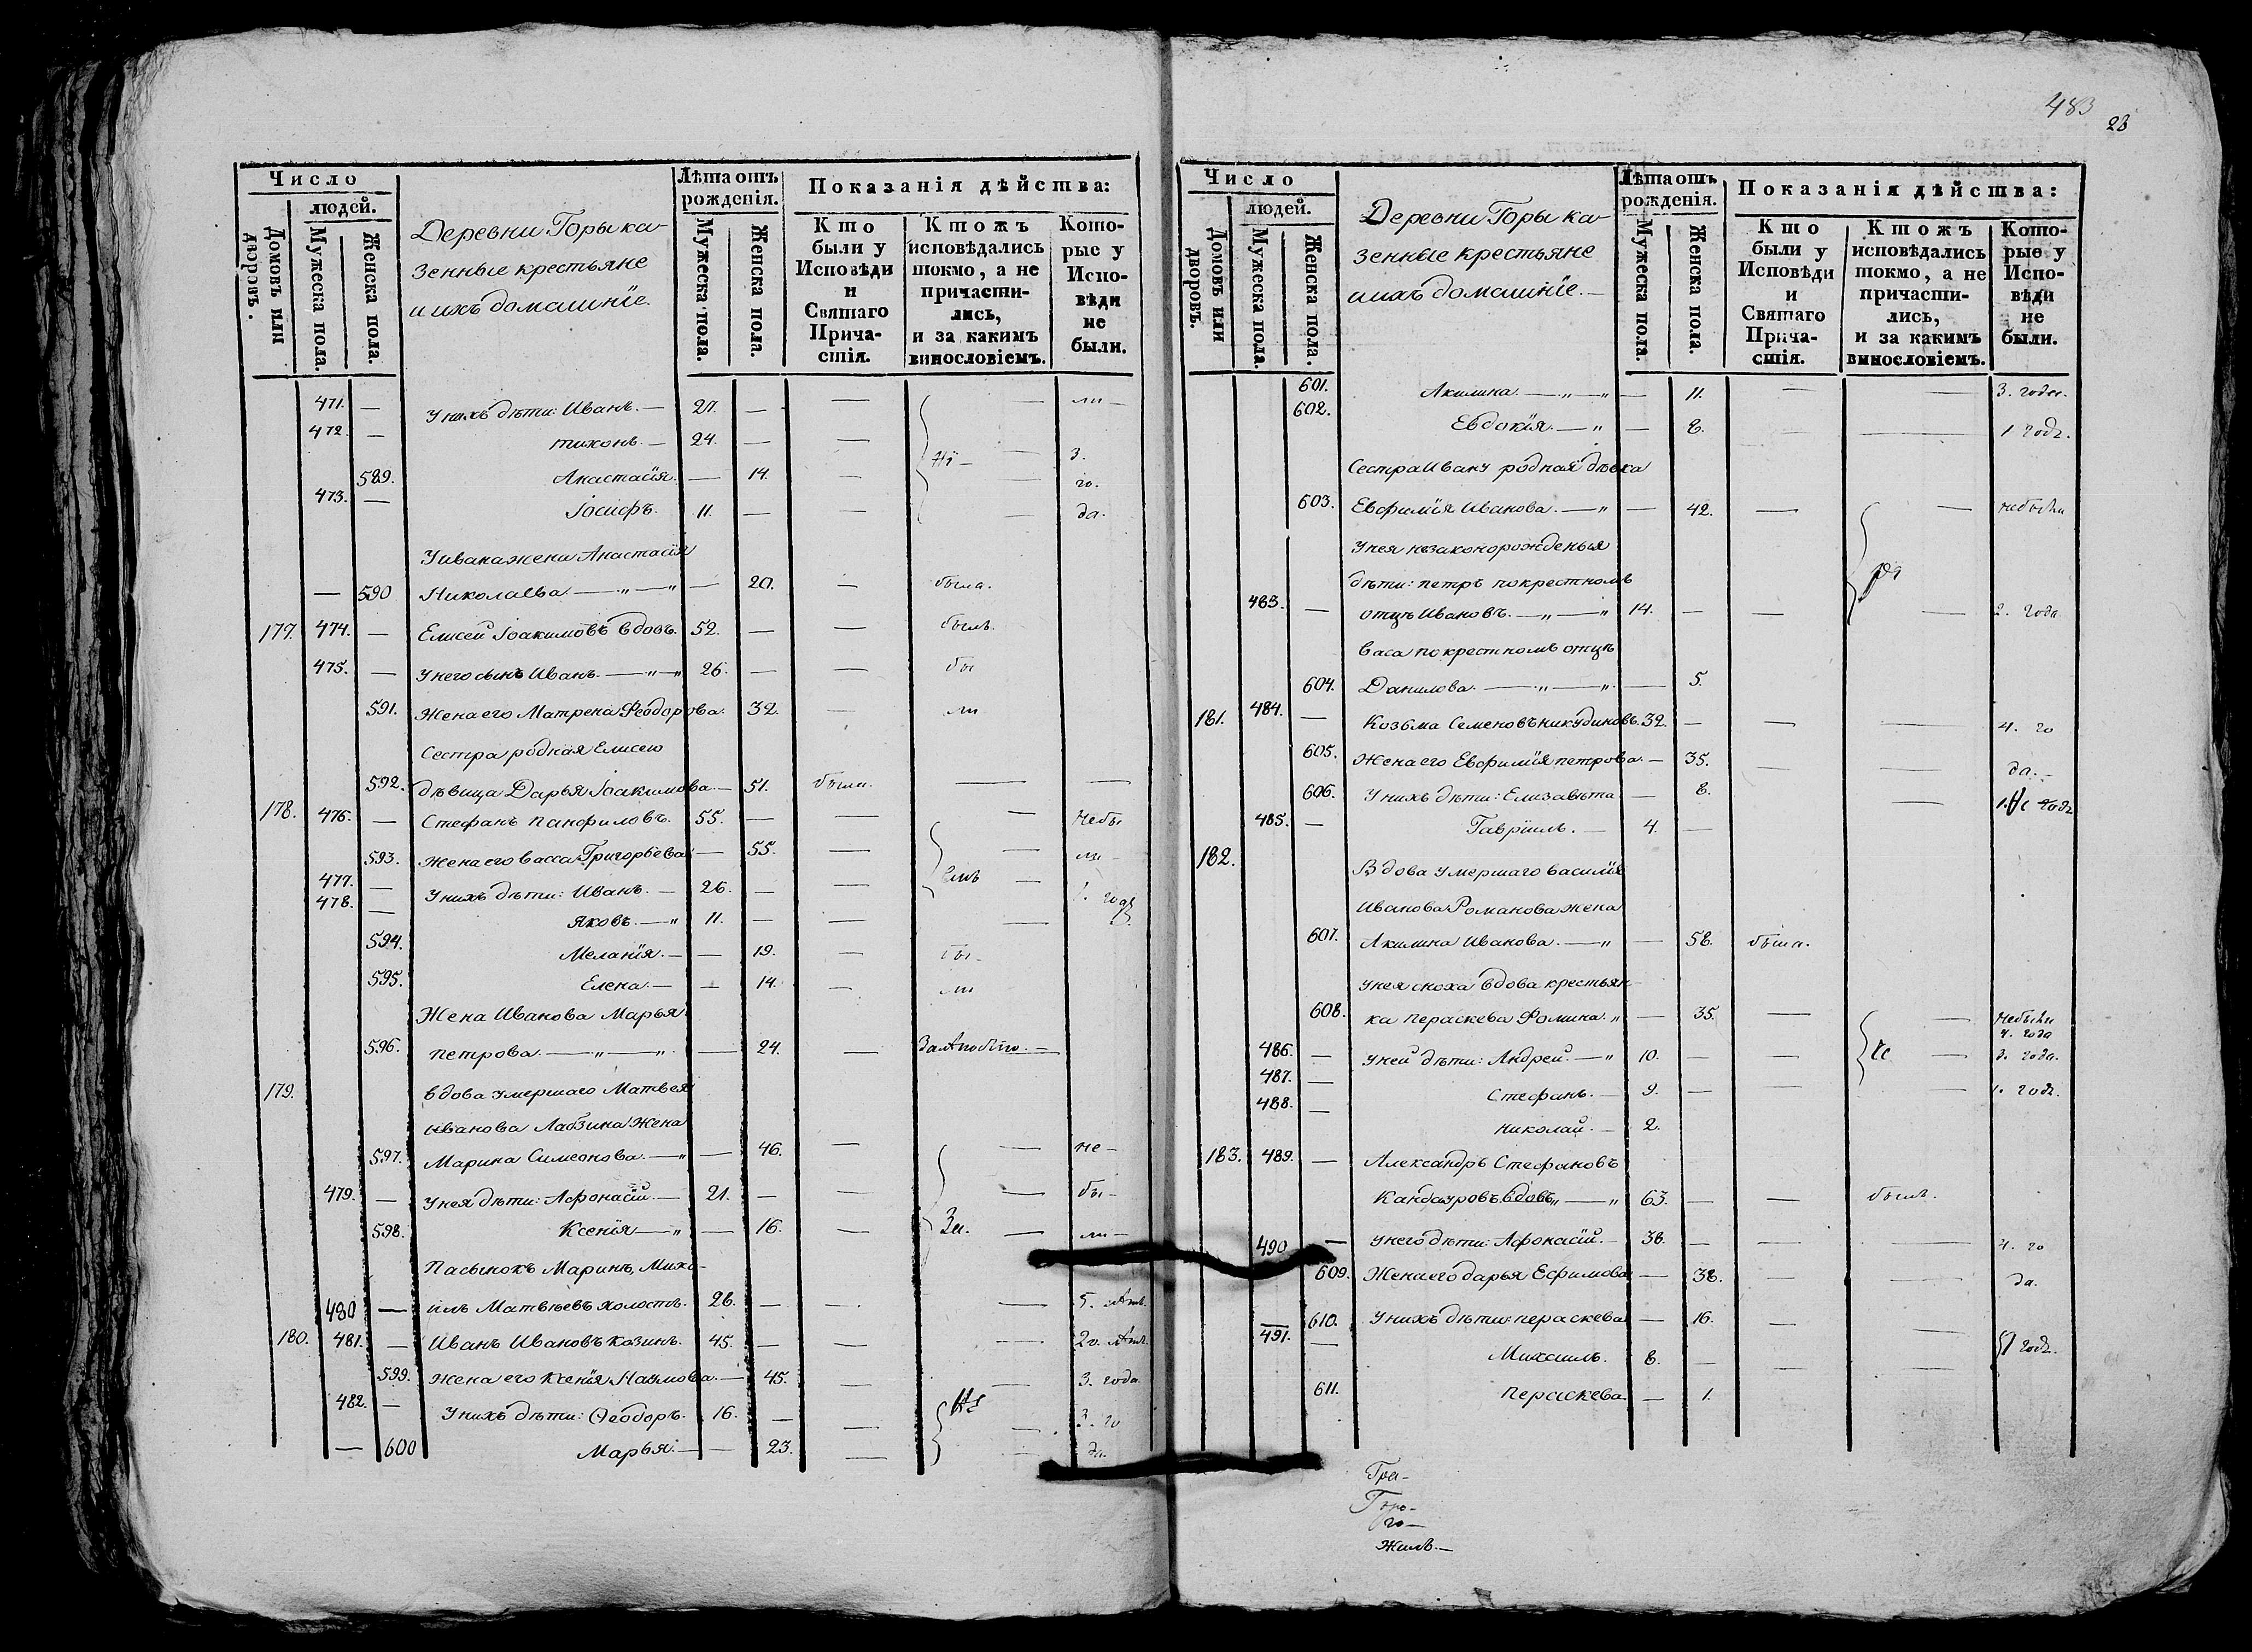 483
23
Число
людей.
Домовъ или дворовъ.
Мужеска пола.
Женска пола.
Деревни Горы ка-
зенные крестьяне
и ихъ домашнїе.
Лѣта отъ
рожденія.
Мужеска пола.
Женска пола.
Показанія дѣйства:
Кто были у Исповѣди и Святаго Прича-стія.
Ктожъ исповѣдались токмо, а не причасти-лись, и за какимъ винословіемъ.
Кото-рые у Испо-вѣди не были.
471. — У нихъ дѣти: Иванъ. — 27. — — — ли —
472. — тихонъ. — 24. — — — 3.
589. Анастасїя. — 14. — — го.
473. — Іосифъ. 11. — — — да.
У ивана жена Анастасїя
— 590 Николаева — „ — „ — 20. — была.
177. 474. — Елисей Іоакимовъ вдовъ. 52. — — былъ.
475. — У него сынъ Иванъ. — „ — „ 26. — — бы
591. Жена его Матрена Ѳеодорова. 32. — ли
Сестра родная Елисею
592. дѣвица Дарья Іоакимова. — 51. была. — —
178. 476. — Стефанъ Панфиловъ. 55. — — — Небы
593. жена его васса Григорьева — 55. — — ли —
477. — У нихъ дѣти: Иванъ. — 26. — — —
478. — Яковъ. — „ 11. — — —
594. Меланїя. — — 19. — бы —
595. Елена. — — 14. — ли
Жена Иванова Марья
596. петрова. — „ — „ — 24. —
179. вдова умершаго Матвея
иванова Лабзина Жена
597. Марина Симеонова. — „ — 46. — — не —
479. — У нея дѣти: Афонасїй. — 21. — — — бы —
598. Ксенїя — „ — 16. — — ли —
Пасынокъ Маринѣ, Миха-
480 — илъ Матвѣевъ холостъ. 26. — — — 5. лѣтъ.
180. 481. — Иванъ Ивановъ Козинъ. 45. — — 20. лѣтъ.
599. жена его Ксенїя Наумова. — 45. — — 3. года
482. — У нихъ дѣти: Ѳеодоръ. 16. — — — 3. го
— 600 Марья. — — 23. — — да.
Число
людей.
Домовъ или дворовъ.
Мужеска пола.
Женска пола.
Деревни Горы ка-
зенные крестьяне
и ихъ домашнїе. —
Лѣта отъ
рожденія.
Мужеска пола.
Женска пола.
Показанія дѣйства:
Кто были у Исповѣди и Святаго Прича-стія.
Ктожъ исповѣдались токмо, а не причасти-лись, и за какимъ винословіемъ.
Кото-рые у Испо-вѣди не были.
601. Акилина. — „ — „ — 11. — — 3. года.
602. Евдокїя. — „ — 8. — — 1 годъ.
Сестра Ивану родная дѣвка
603. Евфимїя Иванова. — „ — 42. — — небыла
У нея незаконорожденыя
дѣти: петръ по крестномъ
483. — отцѣ Ивановъ. — „ — „ 14. — — — 2. года
васа по крестномъ отцѣ
604. Данилова. — „ — „ — 5.
181. 484. — Козьма Семеновъ никудиновъ. 32. — — — 4. го
605. Жена его Евфимїя петрова. — 35. — — да. —
606. У нихъ дѣти: Елизавѣта — 8. —
485. — Гаврїилъ. — 4. —
182. Вдова умершаго василїя
Иванова Романова жена
607. Акилина Иванова. — „ — 58. была.
У нея сноха вдова крестьян-
608. ка пераскева Фомина. „ — 35. — — небыла
4. года
486. — У ней дѣти: Андрей. — „ 10. — — — 3. года.
487. — Стефанъ. — 9. — — — 1. годъ.
488. — николай. — 2.
183. 489. — Александръ Стефановъ
Канбауровъ вдовъ „ — „ 63. — — былъ.
490 — У него дѣти: Афонасїй. — 38. — — — 4. го
609. Жена его дарья Ефимова — 38. — — да.
610. У нихъ дѣти: пераскева — 16. — —
491. — Михаилъ. 8. — — — 1 годъ.
611. пераскева. — 1.
Гра-
Горо-
го —
жилъ. —